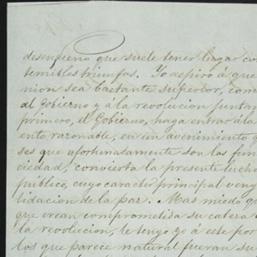 desenfreno que suele tener lugar con
temibles triunfos. Yo aspiro á que
nion sea bastante superior, como
al Gobierno y á la revolucion juntam
primero, el Gobierno, haga entrar á la
ento razonable, en un avenimiento
ses que afortunadamente son las fun
ciedad, convierta la presente lucha
público, cuyo caracter principal veng
lidacion de la paz. Mas miedo que
que crean comprometida su cabeza
la revolucion, le tengo yo á este por
los que parece natural fueran su